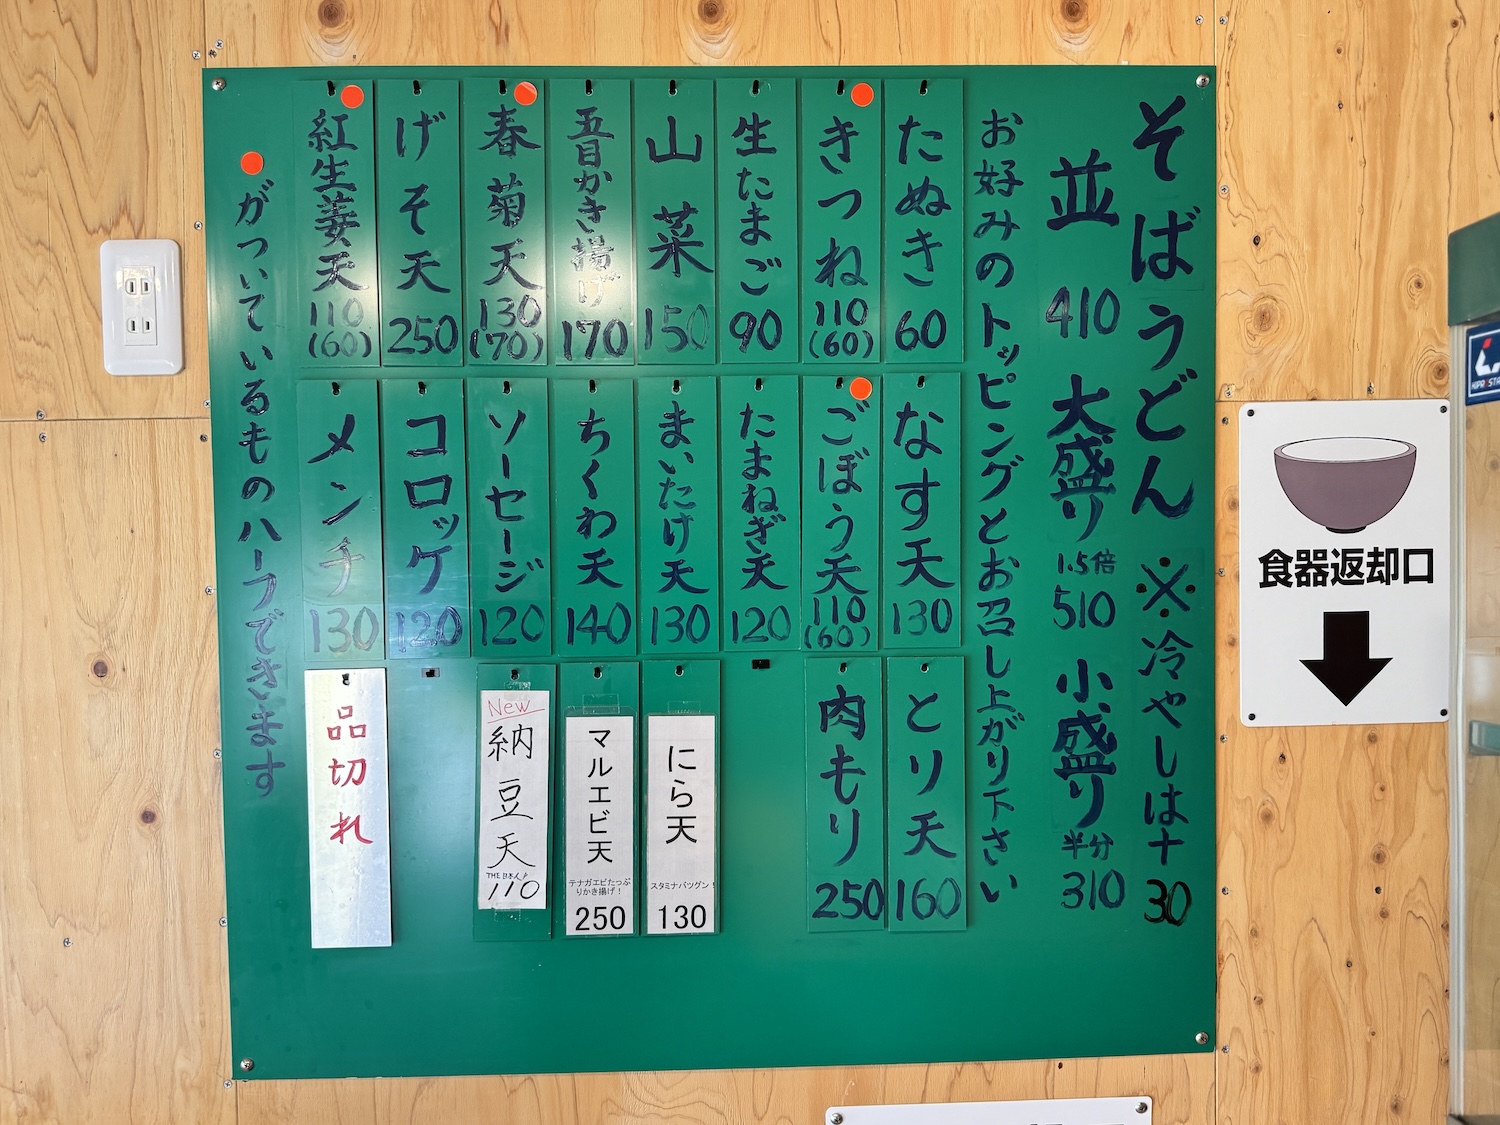 そばうどん ※冷やしは+30
並 410 大盛り 1.5倍 510 小盛り 半分 310
お好みのトッピングとお召し上がり下さい
たぬき 60
きつね 110 (60)
生たまご 90
山菜 150
五目かき揚げ 170
春菊天 130 (70)
げそ天 250
紅生姜天 110 (60)
なす天 130
ごぼう天 110 (60)
たまねぎ天 120
まいたけ天 130
ちくわ天 140
ソーセージ 120
コロッケ 120
メンチ 130
とり天 160
肉もり 250
にら天
スタミナバツグン!
130
マルエビ天
テナガエビたっぷ
りかき揚げ!
250
New
納豆天
THE 日本人!
110
品切れ
がついているものハーフできます
食器返却口